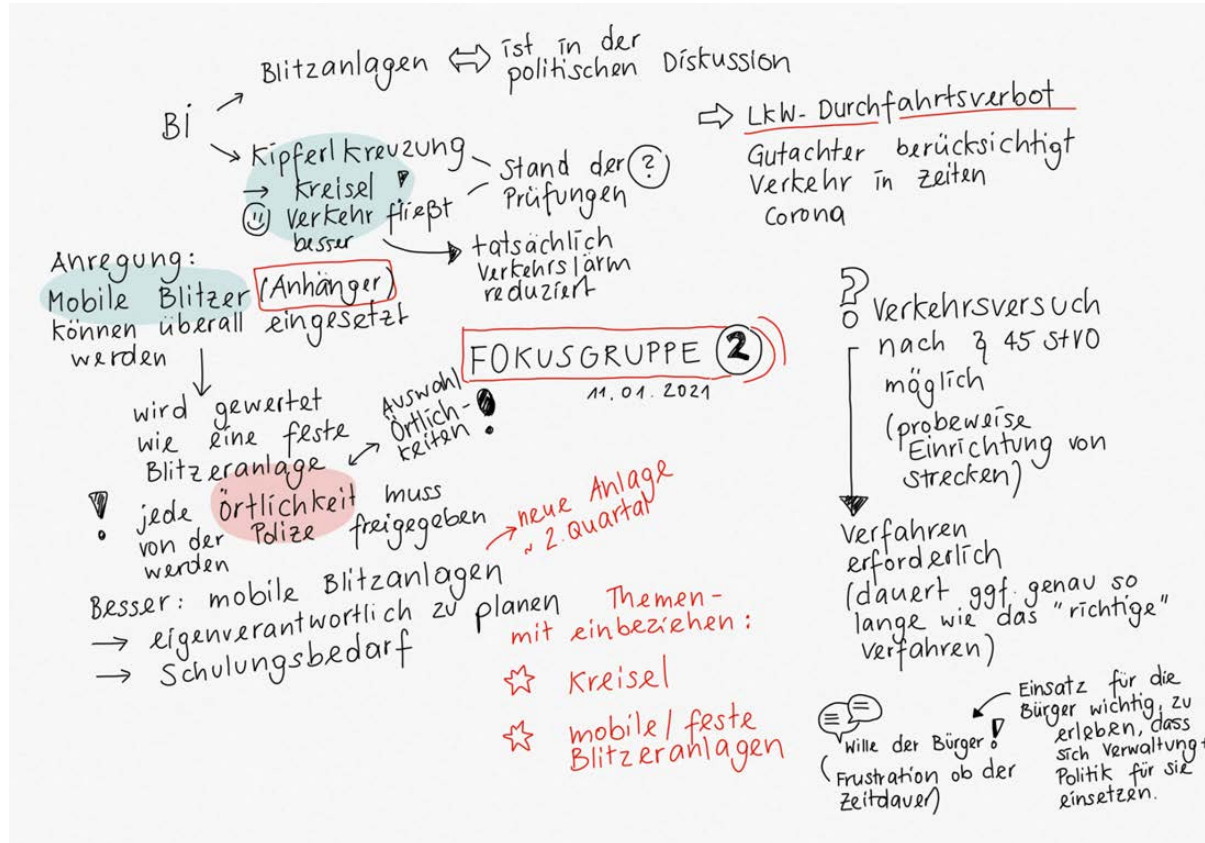 BI
Blitzanlagen ⇔ ist in der
politischen Diskussion
Kipferlkreuzung
→ Kreisel !
Verkehr fließt
besser
Stand der ?
Prüfungen
tatsächlich
Verkehrslärm
reduziert
⇨ LKW-Durchfahrtsverbot
Gutachter berücksichtigt
Verkehr in Zeiten
Corona
Anregung:
Mobile Blitzer (Anhänger)
können überall eingesetzt
werden
FOKUSGRUPPE 2
11.01.2021
wird gewertet
wie eine feste
Blitzeranlage
Auswahl
Örtlich-
keiten !
! jede Örtlichkeit muss
von der Polize freigegeben
werden
→ neue Anlage
~ 2. Quartal
Besser: mobile Blitzanlagen
→ eigenverantwortlich zu planen
→ Schulungsbedarf
Themen-
mit einbeziehen:
☆ Kreisel
☆ mobile/feste
Blitzeranlagen
? Verkehrsversuch
nach § 45 StVO
möglich
(probeweise
Einrichtung von
Strecken)
Verfahren
erforderlich
(dauert ggf. genau so
lange wie das "richtige"
Verfahren)
Wille der Bürger!
(Frustration ob der
Zeitdauer)
Einsatz für die
Bürger wichtig, zu
erleben, dass
sich Verwaltung +
Politik für sie
einsetzen.